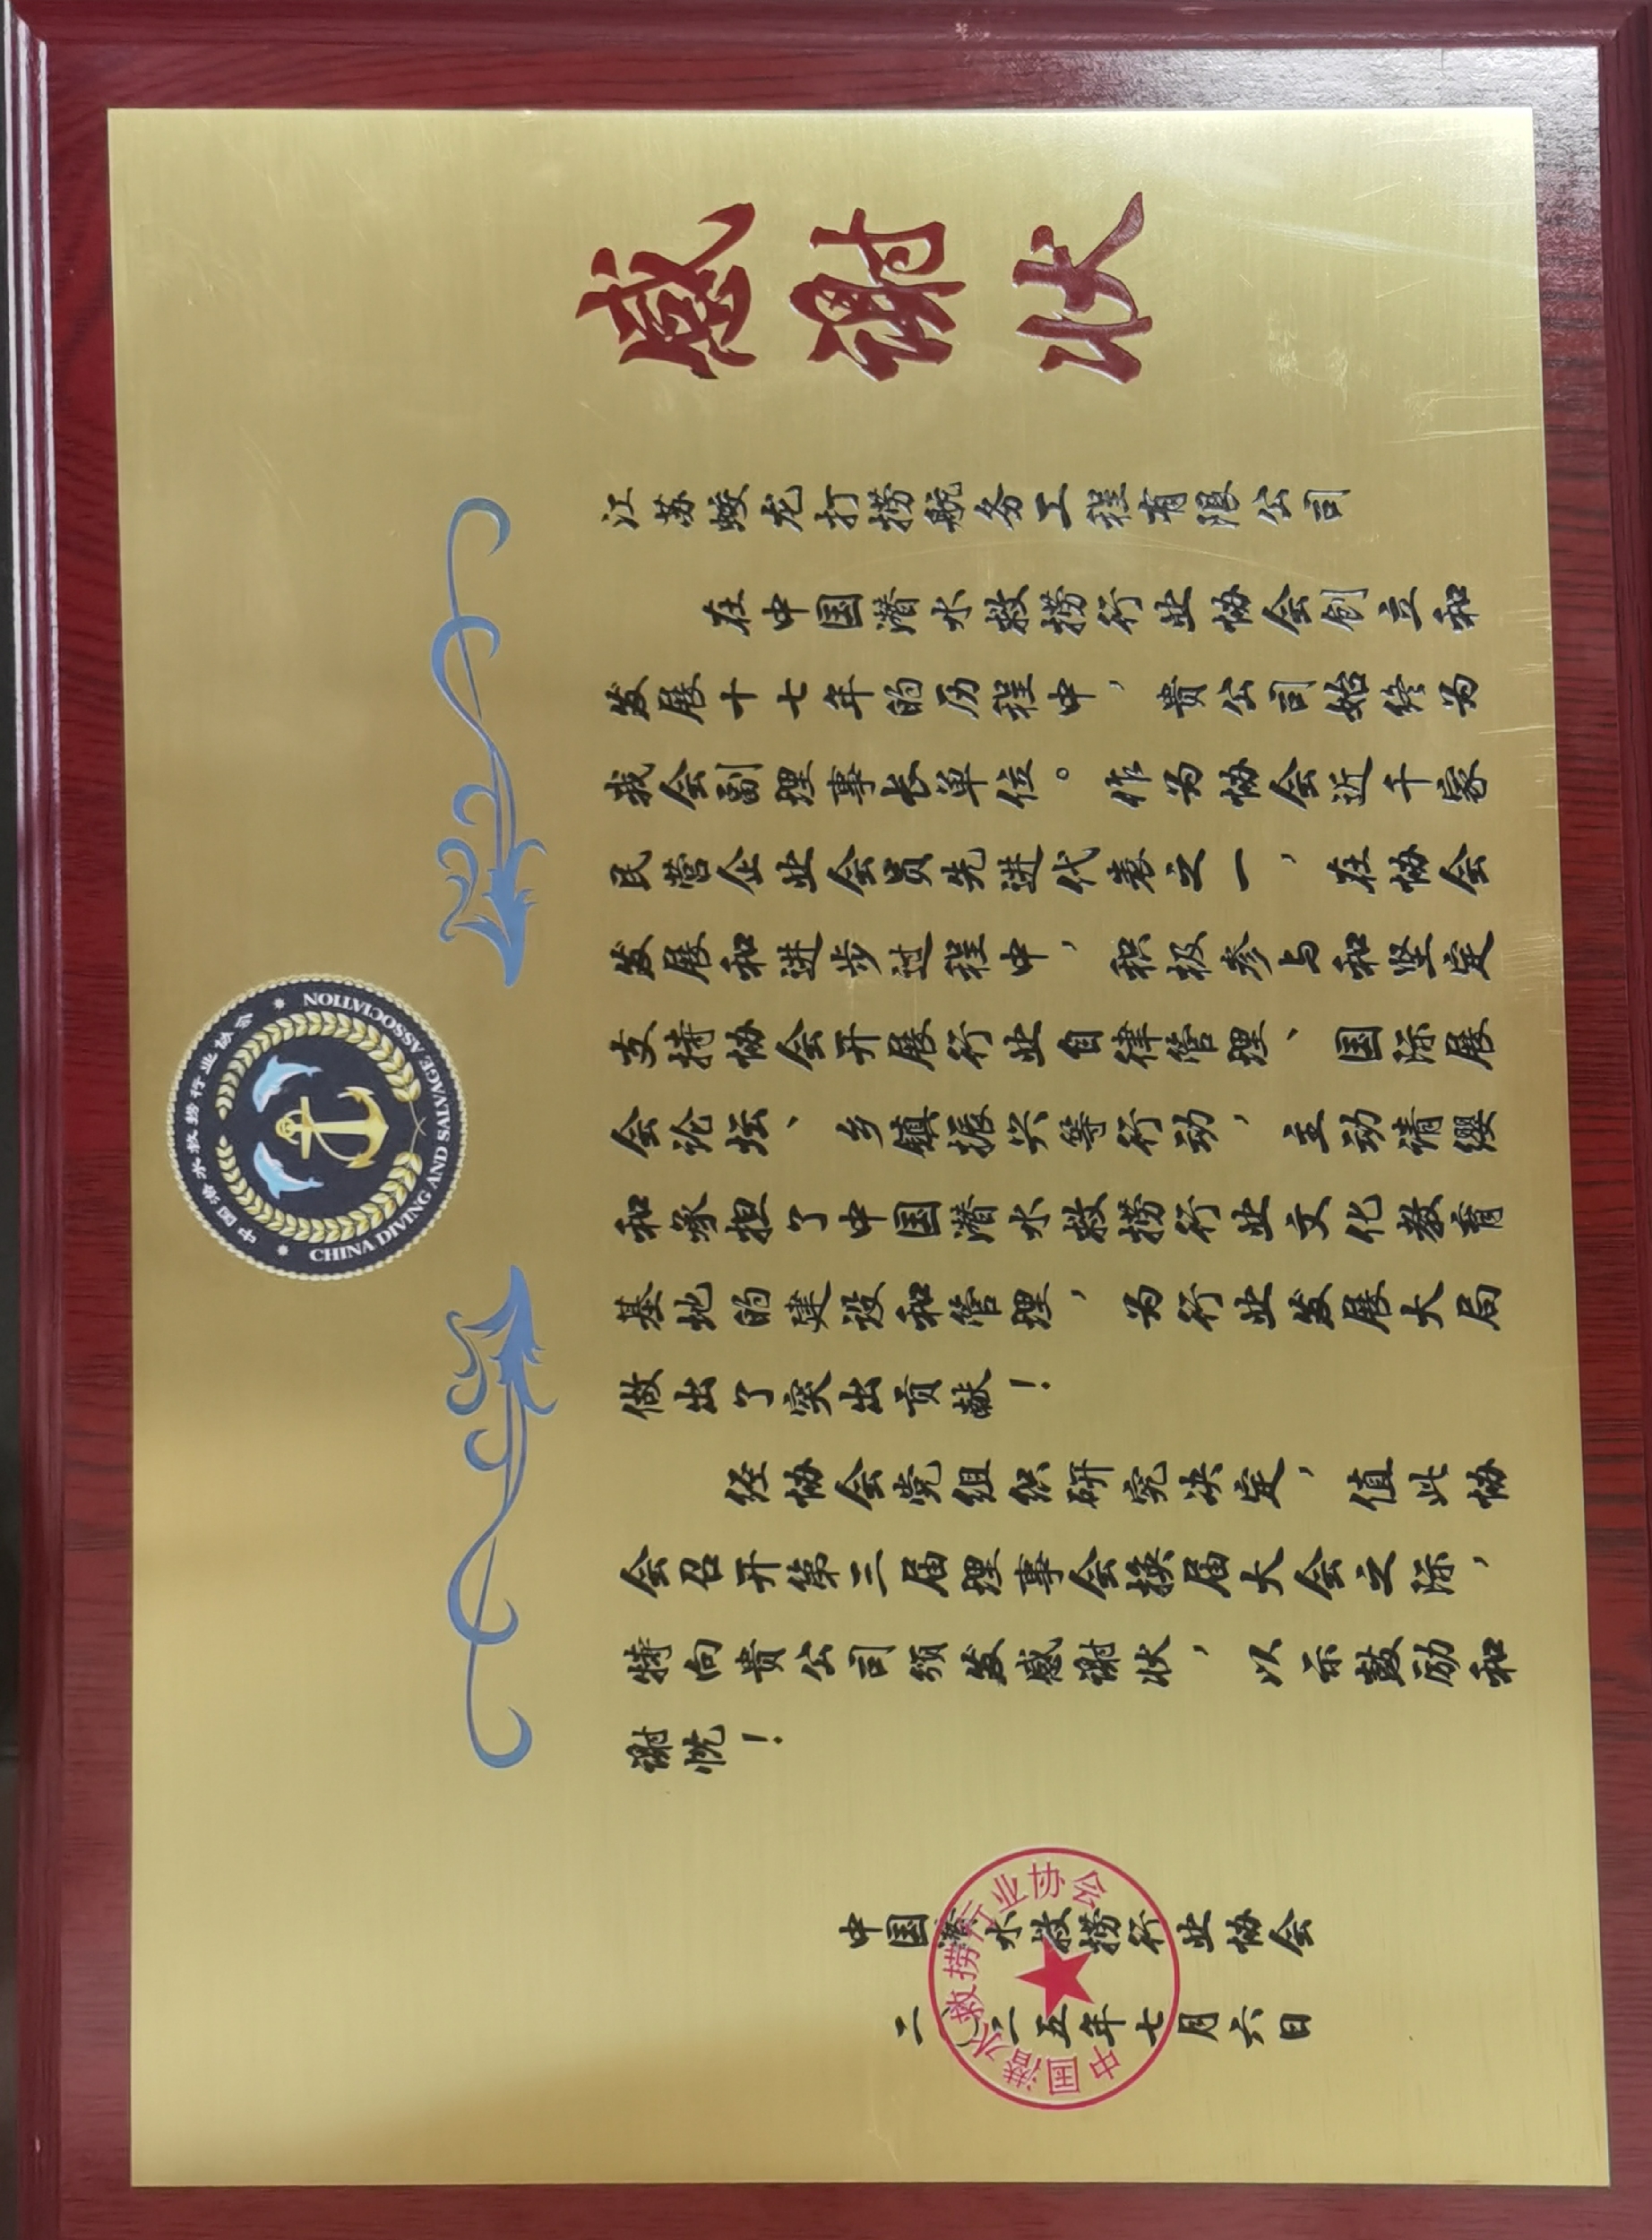 中国潜水救捞行业协会
CHINA DIVING AND SALVAGE ASSOCIATION
感谢状
江苏蛟龙打捞航务工程有限公司
在中国潜水救捞行业协会创立和
发展十七年的历程中，贵公司始终为
我会副理事长单位。作为协会近千家
民营企业会员先进代表之一，在协会
发展和进步过程中，积极参与和坚定
支持协会开展行业自律管理、国际展
会论坛、乡镇振兴等行动，主动请缨
和承担了中国潜水救捞行业文化教育
基地的建设和管理，为行业发展大局
做出了突出贡献！
经协会党组织研究决定，值此协
会召开第三届理事会换届大会之际，
特向贵公司颁发感谢状，以示鼓励和
谢忱！
中国潜水救捞行业协会
二〇二五年七月六日
中国潜水救捞行业协会